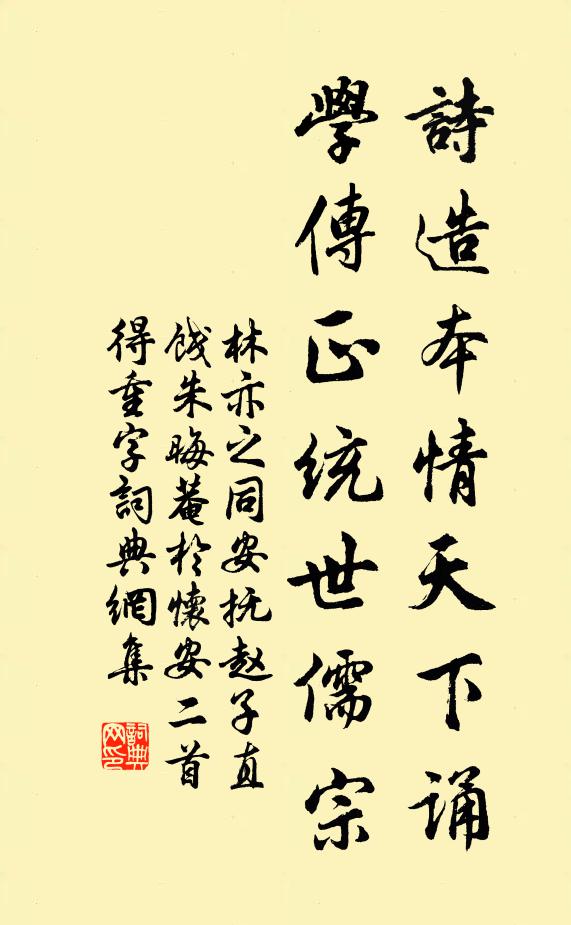 詩造本情天下誦
學傳正統世儒宗
林亦之同安抚赵子直
饯朱晦菴於懷安二首
得重字詞典網集
詞典网印